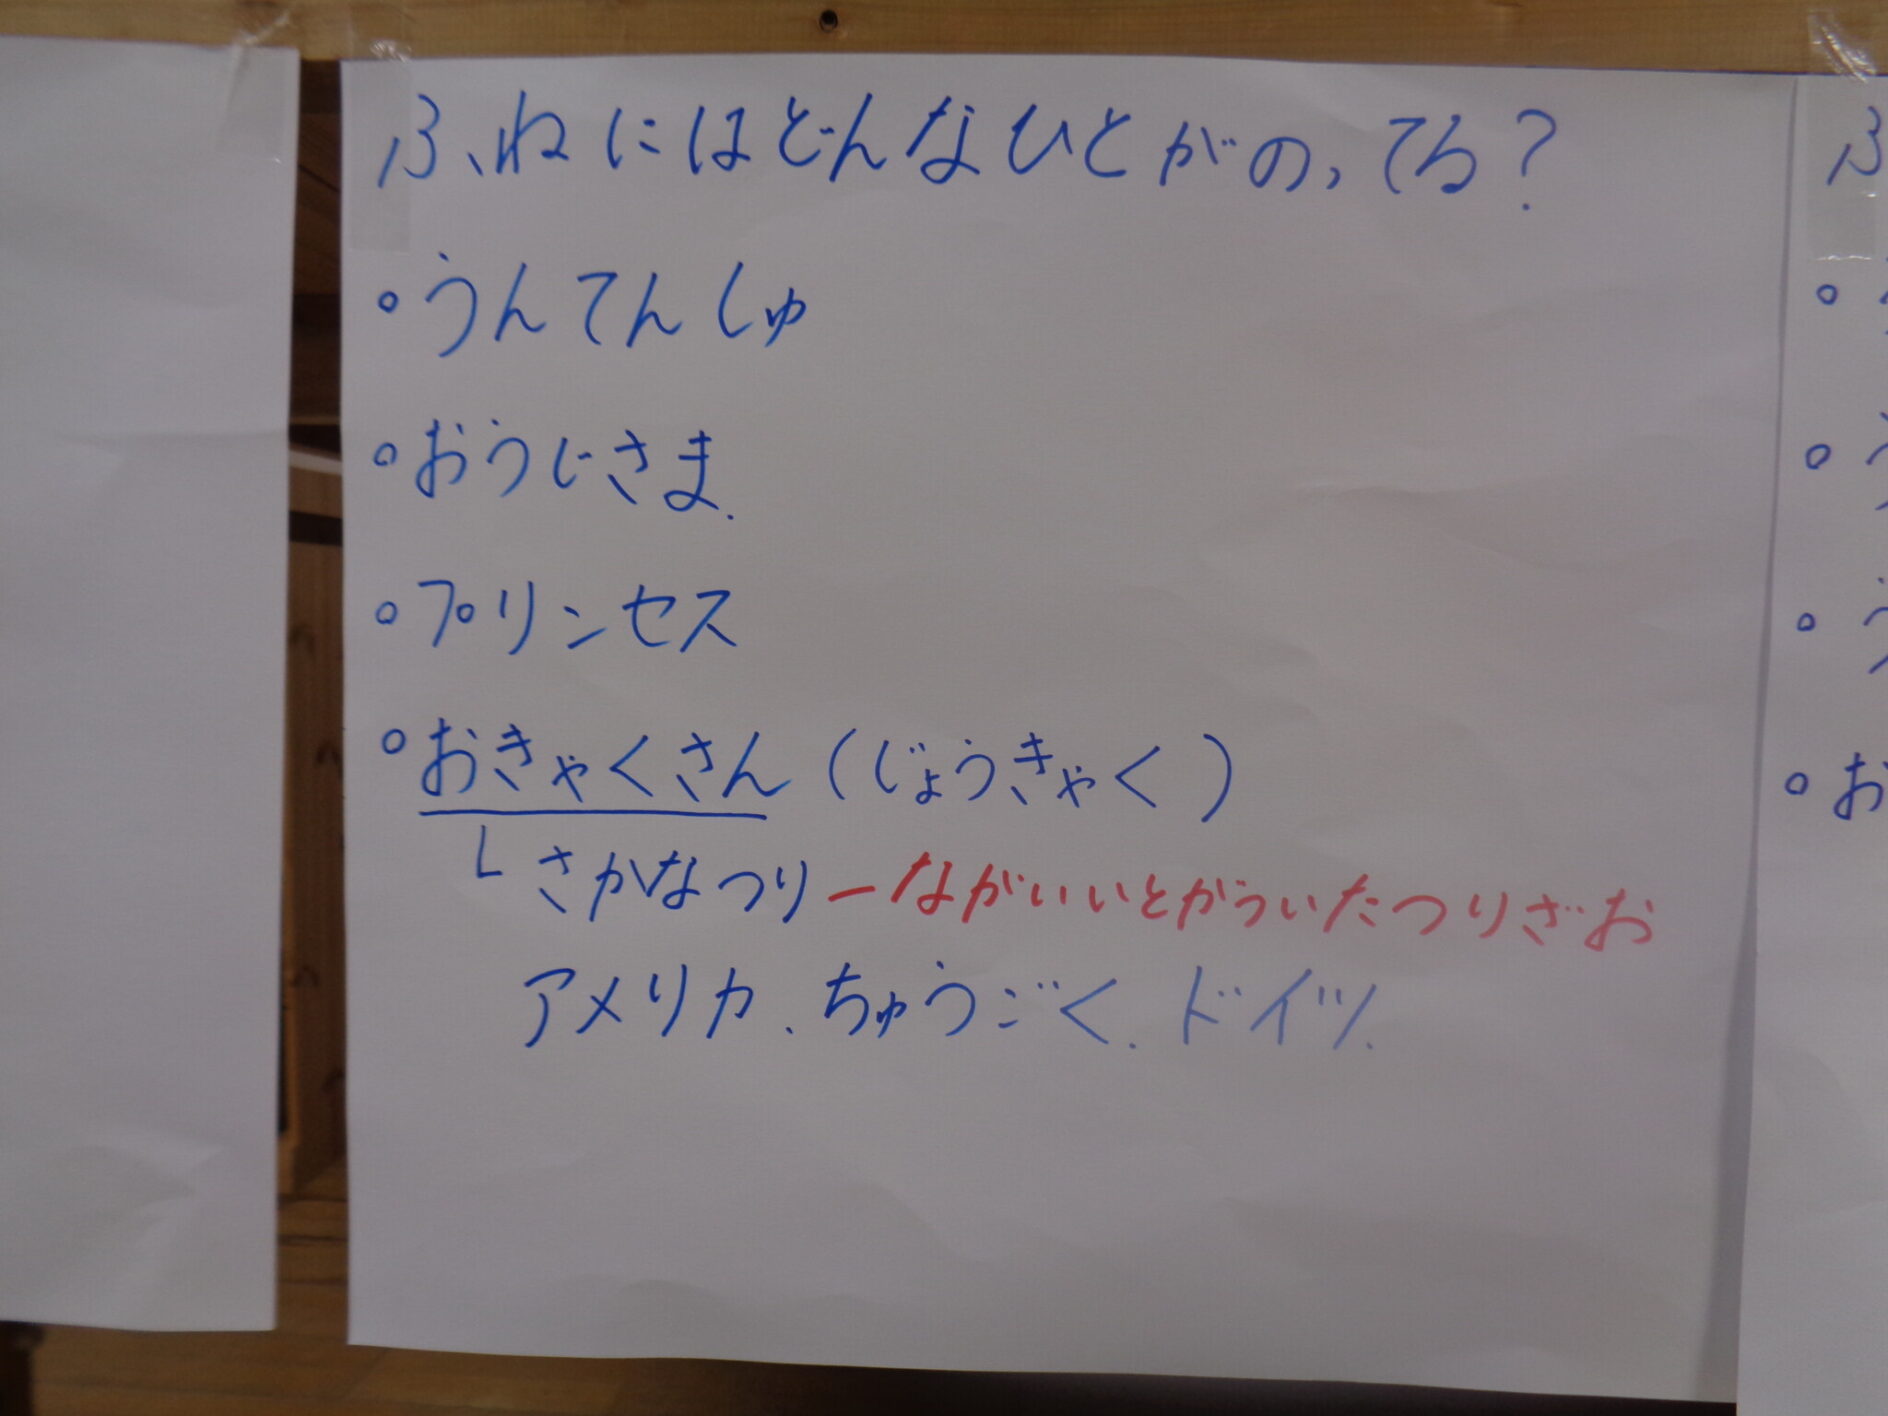 ふねにはどんなひとがのってる?
○うんてんしゅ
○おうじさま.
○プリンセス
○おきゃくさん(じょうきゃく)
└さかなつり―ながいいとがういたつりざお
アメリカ、ちゅうごく.ドイツ.
ふ
○
○
○
○お